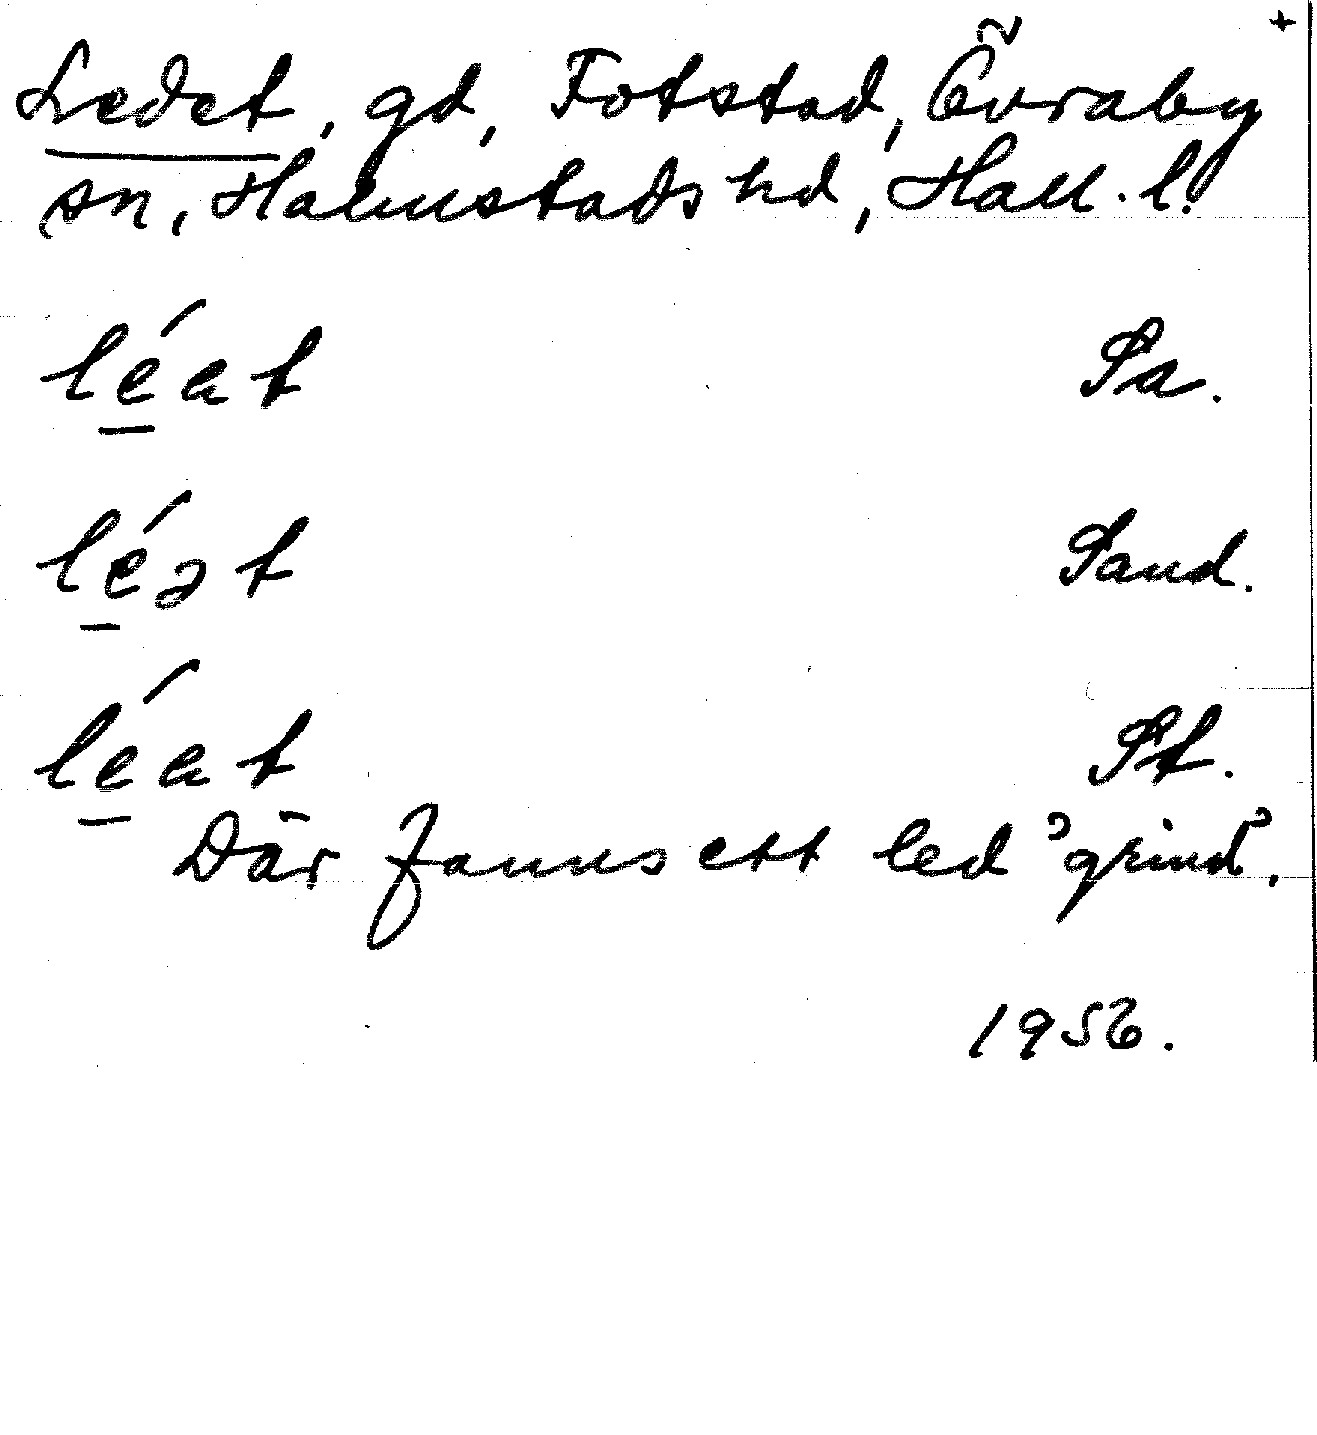 +
Ledet, gd, Fotstad, Övraby
sn, Halmstads hd, Hall. l.
lé̱at Sa.
lé̱ət Sand.
lé̱at St.
Där fanns ett led ”grind”.
1956.